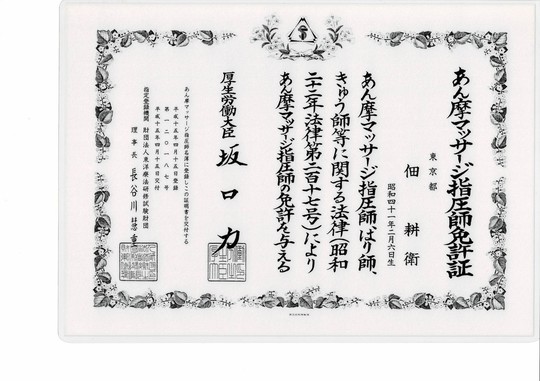 あん摩マッサージ指圧師免許証
東京都
佃 耕衛
昭和四十一年二月六日生
あん摩マッサージ指圧師、はり師、
きゅう師等に関する法律(昭和
二十二年法律第二百十七号)により
あん摩マッサージ指圧師の免許を与える
厚生労働大臣 坂口 力
あん摩マッサージ指圧師名簿に登録しこの証明書を交付する
平成十五年四月十五日登録
第一二〇一八七号
平成十五年四月十五日交付
指定登録機関 財団法人東洋療法研修試験財団
理事長 長谷川 慧重